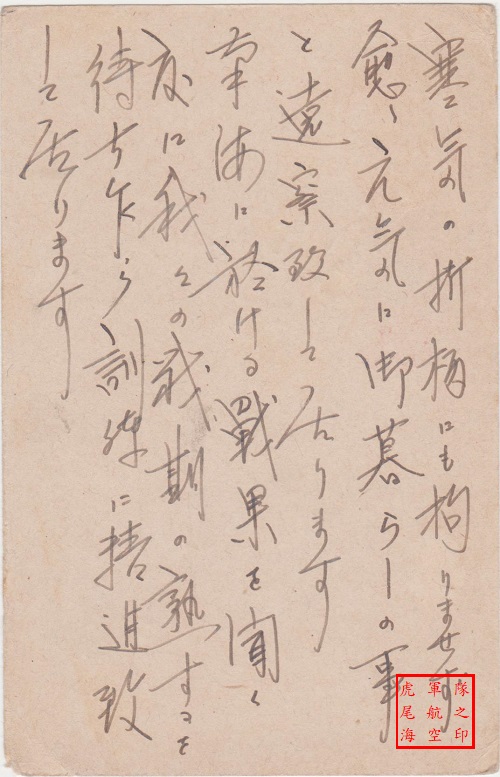 寒気の折柄にも拘りませず
愈々元気に御暮らしの事
と遠察致して居ります
南海に於ける戦果を聞く
度に我々の戦期の熟するを
待ち乍ら訓練に精進致
して居ります
虎尾海
軍航空
隊之印